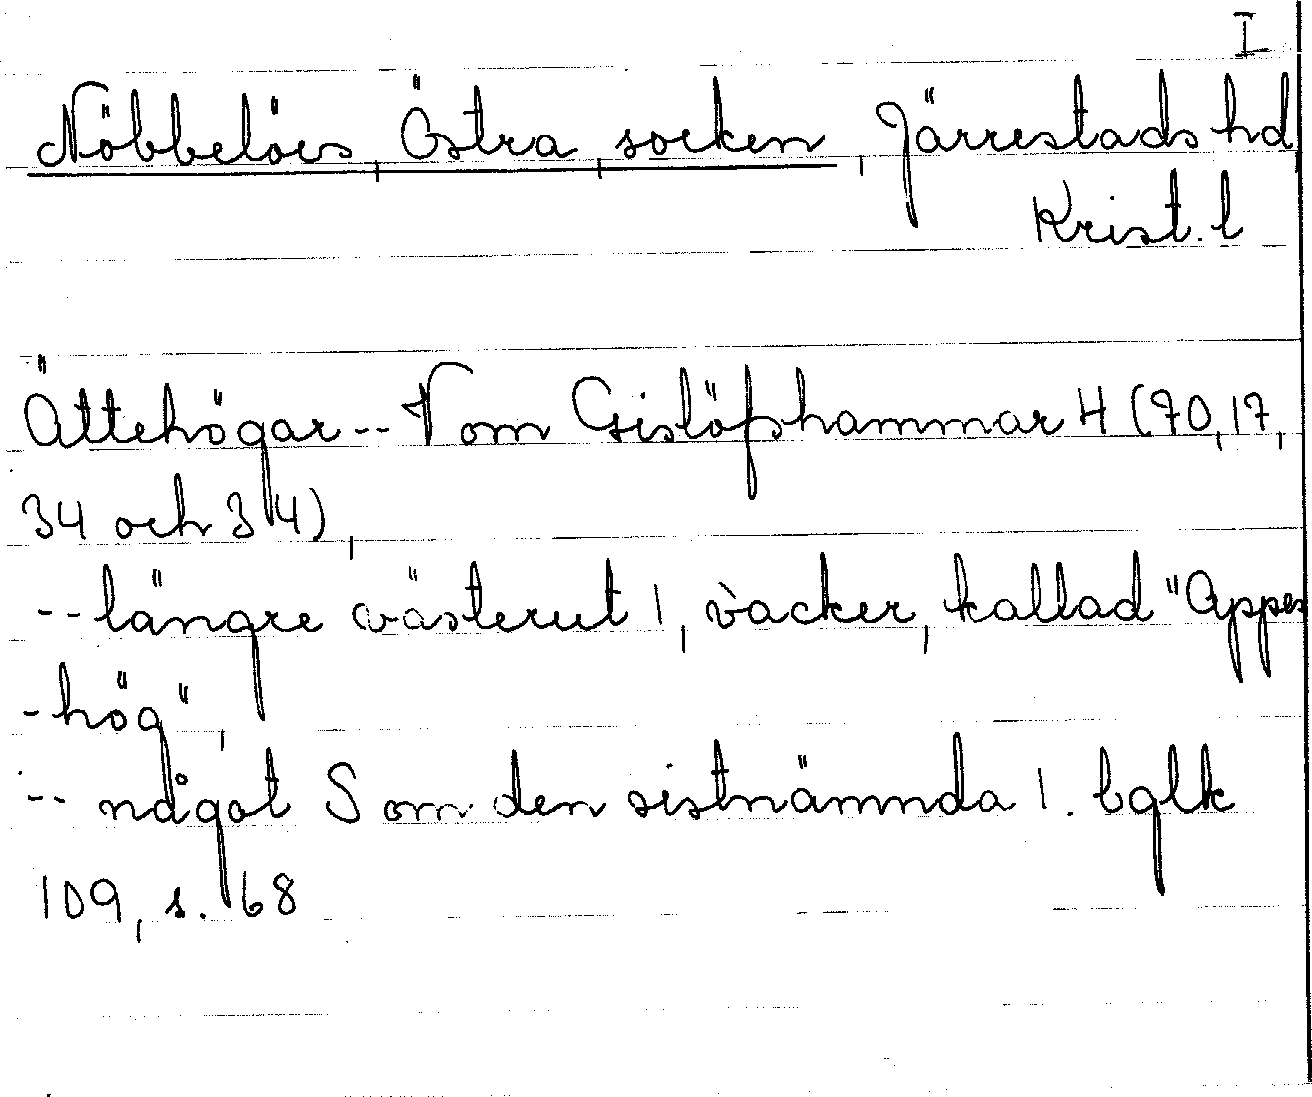 I
Nöbbelövs, Östra, socken, Järrestads hd
Krist. l
Ättehögar -- V om Gislöfshammar 4 (70, 17,
34 och 34),
-- längre västerut 1, vacker, kallad "Appes
-hög",
-- något S om den sistnämnda 1. bglk
109, s. 68